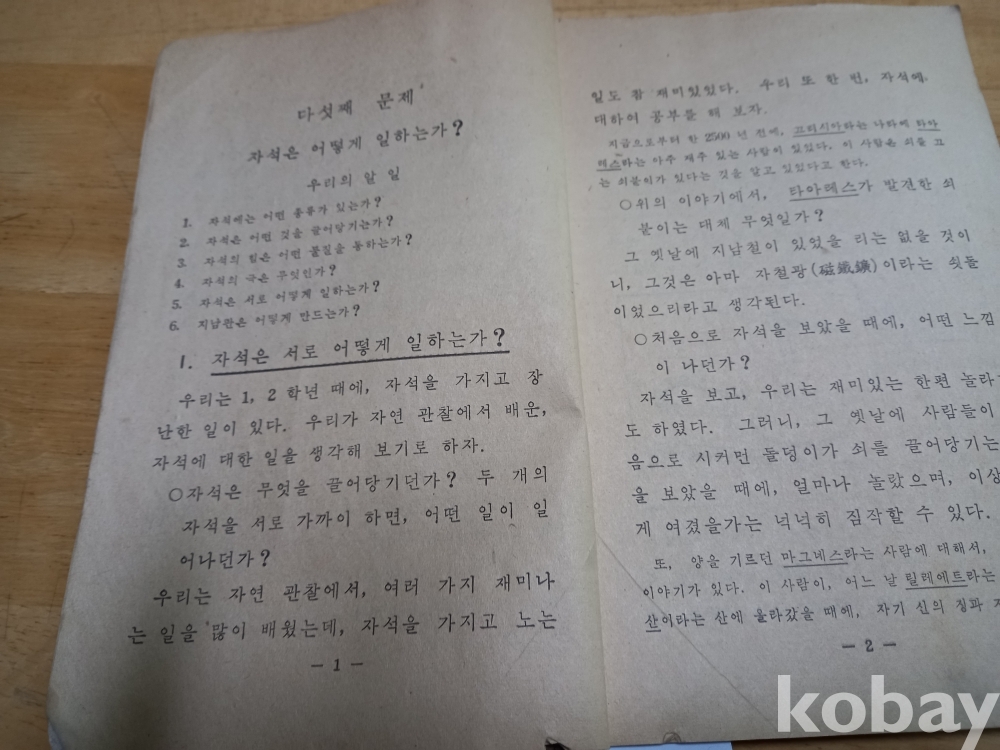 다섯째 문제
자석은 어떻게 일하는가?
우리의 할 일
1. 자석에는 어떤 종류가 있는가?
2. 자석은 어떤 것을 끌어당기는가?
3. 자석의 힘은 어떤 물질을 통하는가?
4. 자석의 극은 무엇인가?
5. 자석은 서로 어떻게 일하는가?
6. 지남판은 어떻게 만드는가?
1. 자석은 서로 어떻게 일하는가?
우리는 1, 2 학년 때에, 자석을 가지고 장
난한 일이 있다. 우리가 자연 관찰에서 배운,
자석에 대한 일을 생각해 보기로 하자.
○자석은 무엇을 끌어당기던가? 두 개의
자석을 서로 가까이 하면, 어떤 일이 일
어나던가?
우리는 자연 관찰에서, 여러 가지 재미나
는 일을 많이 배웠는데, 자석을 가지고 노는
— 1 —
일도 참 재미있었다. 우리 또 한 번, 자석에
대하여 공부를 해 보자.
지금으로부터 한 2500 년 전에, 끄리시아라는 나라에 타아
레스라는 아주 재주 있는 사람이 있었다. 이 사람은 쇠를 끄
는 쇠붙이가 있다는 것을 알고 있었다고 한다.
○위의 이야기에서, 타아레스가 발견한 쇠
붙이는 대체 무엇일가?
그 옛날에 지남철이 있었을 리는 없을 것이
니, 그것은 아마 자철광(磁鐵鑛)이라는 쇳돌
이었으리라고 생각된다.
○처음으로 자석을 보았을 때에, 어떤 느낌
이 나던가?
자석을 보고, 우리는 재미있는 한편 놀라
도 하였다. 그러니, 그 옛날에 사람들이
음으로 시커먼 돌덩이가 쇠를 끌어당기는
을 보았을 때에, 얼마나 놀랐으며, 이상
게 여겼을가는 넉넉히 짐작할 수 있다.
또, 양을 기르던 마그네스라는 사람에 대해서,
이야기가 있다. 이 사람이, 어느 날 릴레에트라는
산이라는 산에 올라갔을 때에, 자기 신의 징과 지
— 2 —
kobay